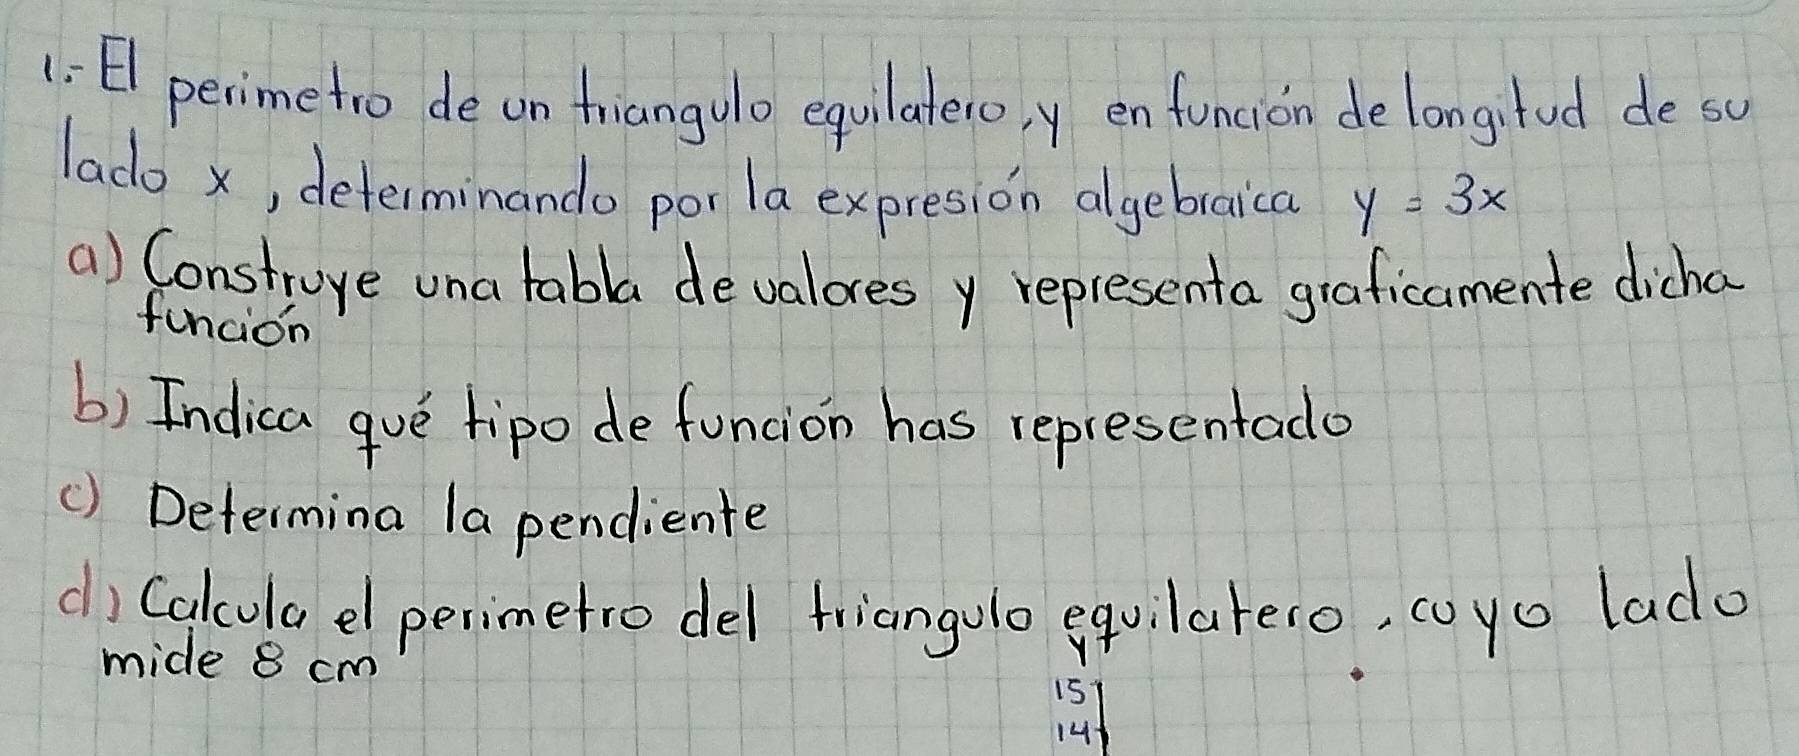 1.- El perimetro de un triangulo equilatero, y en función de longitud de su
lado x, determinando por la expresión algebraica y = 3x
a) Construye una tabla de valores y representa graficamente dicha
función
b) Indica qué tipo de función has representado
c) Determina la pendiente
d) Calcula el perimetro del triangulo equilatero, cuyo lado
mide 8 cm
y
15
14